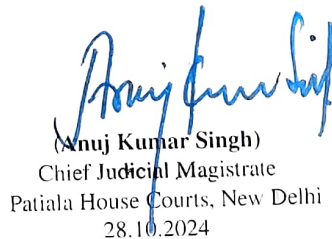 Anuj Kumar Singh
(Anuj Kumar Singh)
Chief Judicial Magistrate
Patiala House Courts, New Delhi
28.10.2024